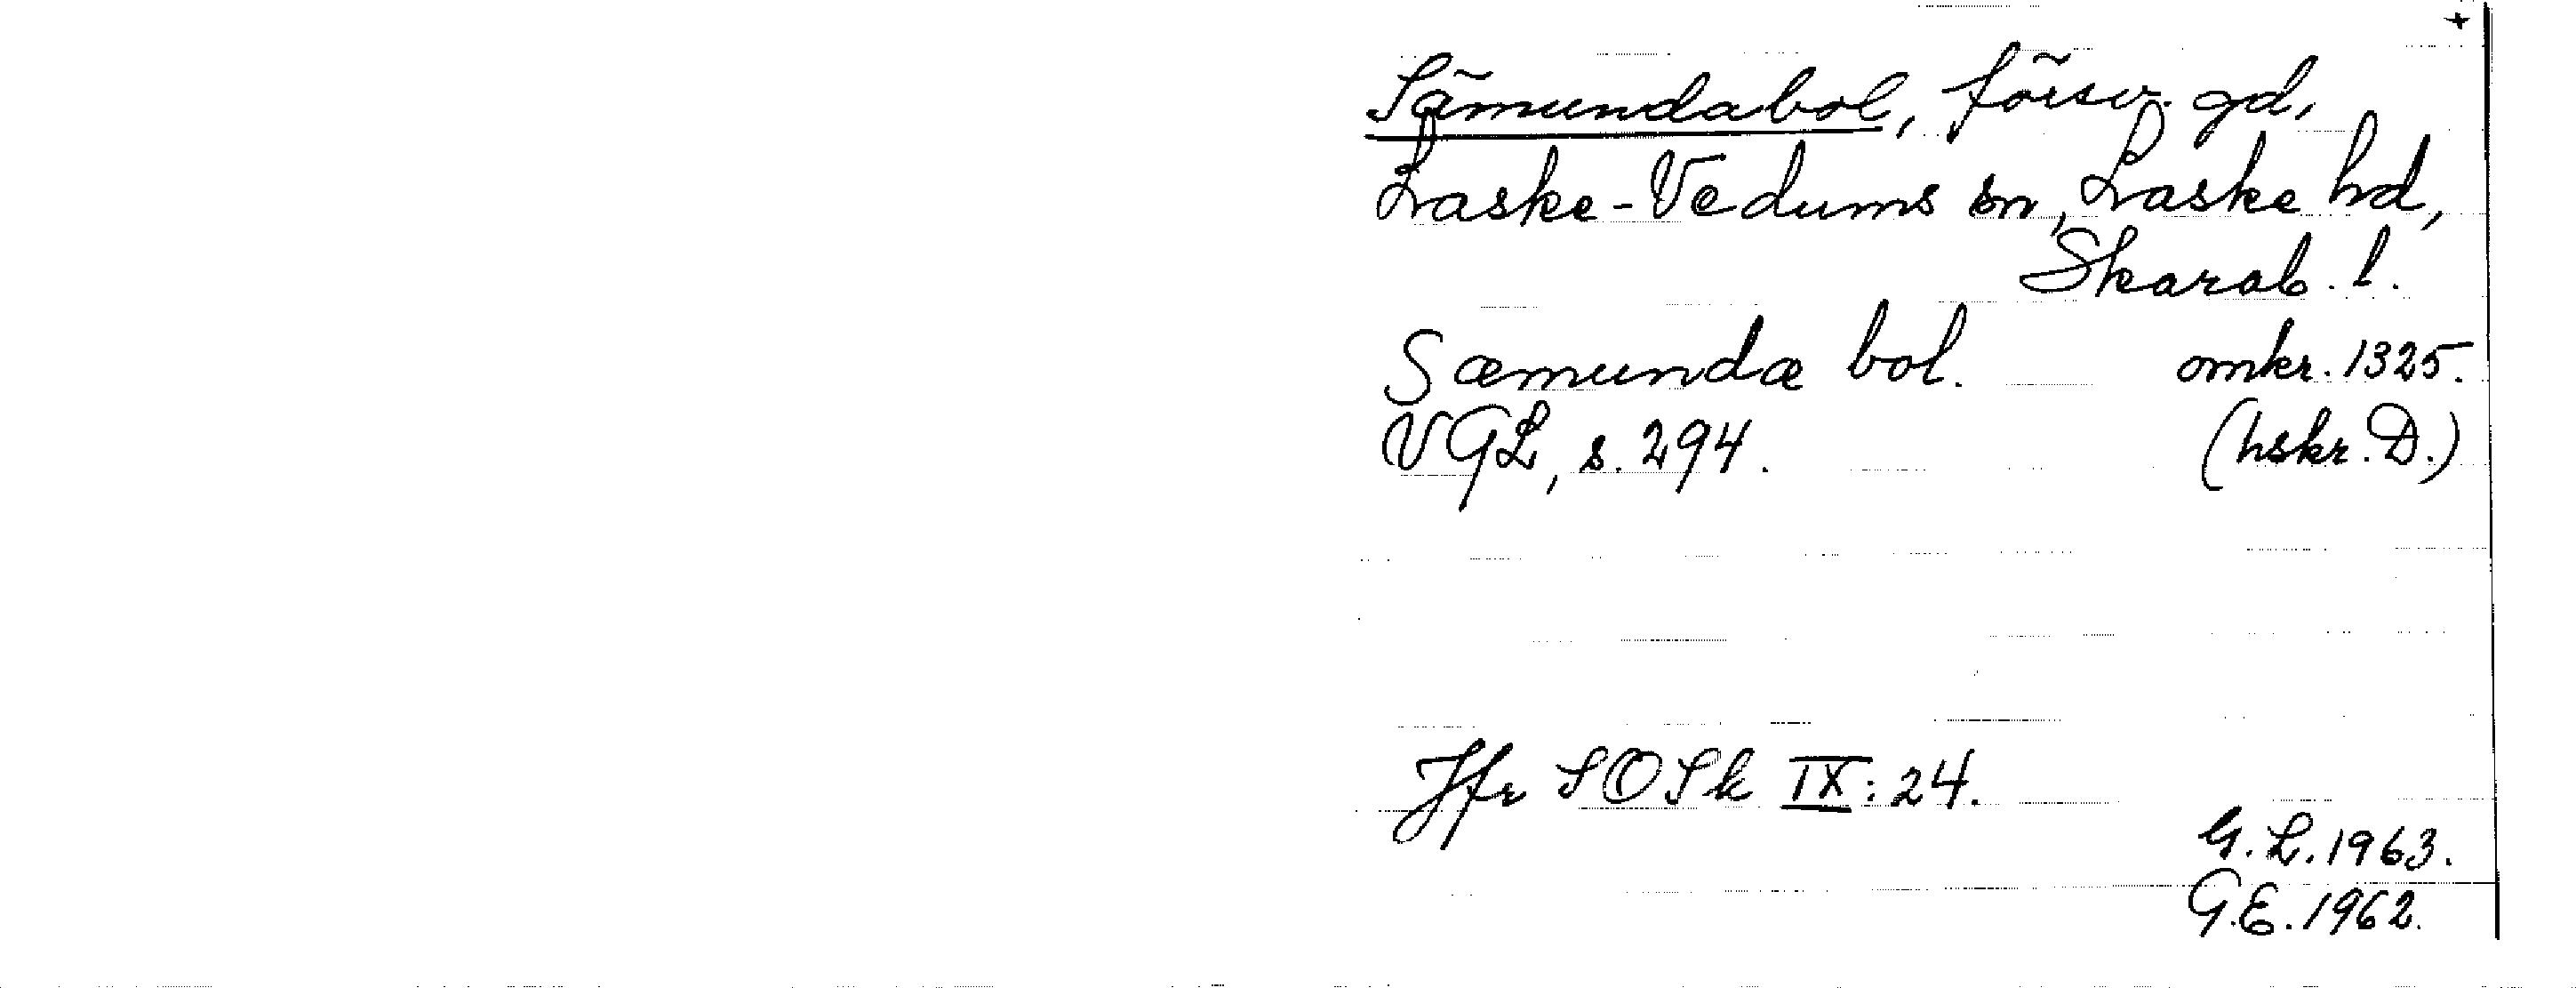 +
Sämundabol, försv. gd,
Laske-Vedums sn, Laske hd,
Skarab. l.
Sæmundæ bol. omkr. 1325.
VGL, s. 294. (hskr. D.)
Jfr SOSk IX: 24.
G. L. 1963.
G.E. 1962.